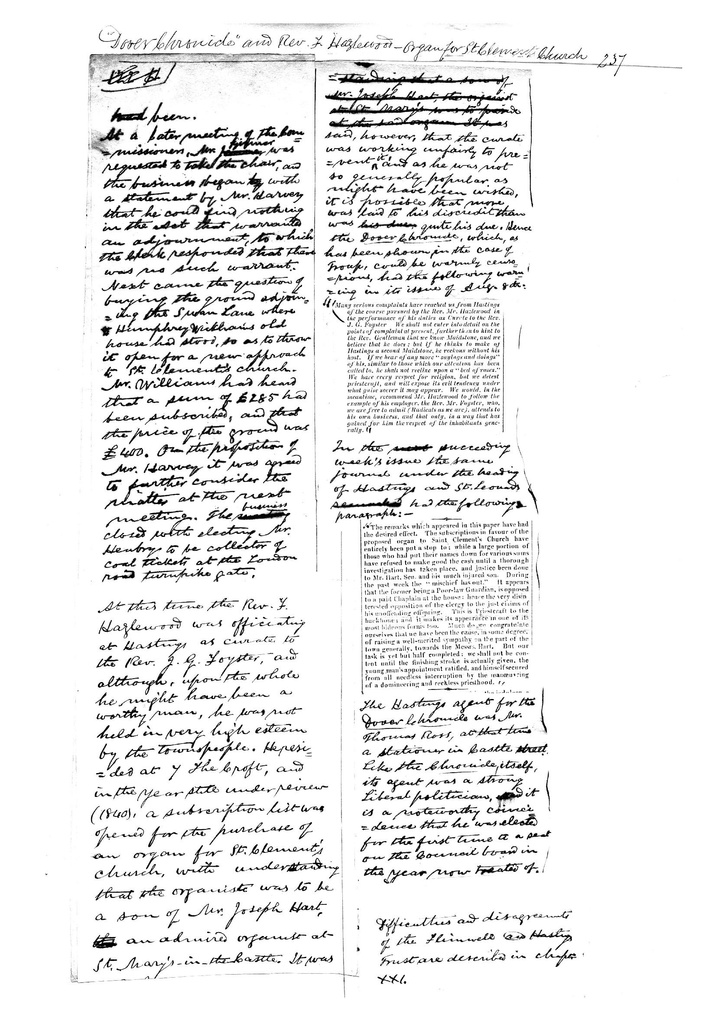 "Dover Chronicle" and Rev. F. Hazlewood – Organ for St. Clement's Church 237
had been.
At a later meeting of the Com
=missioners, Mr. was
requested to take the chair, and
the business began by with
a statement by Mr. Harvey
that he could find nothing
in the act that warranted
an adjournment, to which
the Clerk responded that there
was no such warrant.
Next came the question of
buying the ground adjoin-
=ing the Swan Lane where
Humphrey Wickhams old
house had stood, so as to throw
it open for a new approach
to St. Clement's church.
Mr. Williams had heard
that a sum of £285 had
been subscribed, and that
the price of the ground was
£400. On the proposition of
Mr. Harvey it was agreed
to further consider the
matter at the next
meeting. The business
closed with electing Mr.
Henbry to be collector of
coal tickets at the London
road turnpike gate.
At this time the Rev. F.
Hazlewood was officiating
at Hastings as curate to
the Rev. J. G. Foyster, and
although, upon the whole
he might have been a
worthy man, he was not
held in very high esteem
by the townspeople. He resi-
=ded at 7 The Croft, and
in the year still under review
(1840), a subscription list was
opened for the purchase of
an organ for St. Clement's
church, with understanding
that the organist was to be
a son of Mr. Joseph Hart,
an admired organist at
St. Mary's-in-the-Castle. It was
standing that a son of
Mr. Joseph Hart, the organist
at St. Mary's was to preside
at the said organ. It was
said, however, that the curate
was working unfairly to pre-
=vent it, and as he was not
so generally popular as
might have been wished,
it is possible that more
was laid to his discredit than
was his due quite his due. Hence
the Dover Chronicle, which, as
has been shown in the case of
Troup, could be warmly cens
=orious, had the following warn
=ing in its issue of Augt 8th:
"Many serious complaints have reached us from Hastings
of the course pursued by the Rev. Mr. Hazlewood in
the performance of his duties as Curate to the Rev.
J. G. Foyster We shall not enter into detail on the
points of complaint at present, further than to hint to
the Rev. Gentleman that we know Maidstone, and we
believe that he does; but if he thinks to make of
Hastings a second Maidstone, he reckons without his
host. If we hear of any more "sayings and doings"
of his, similar to those which our attention has been
called to, he shall not realize upon a "bed of roses."
We have every respect for religion, but we detest
priestcraft, and will expose its evil tendency under
what guise soever it may appear. We would, in the
meantime, recommend Mr. Hazlewood to follow the
example of his employer, the Rev. Mr. Foyster, who,
we are free to admit (Radicals as we are), attends to
his own business, and that only, in a way that has
gained for him the respect of the inhabitants gene-
rally."
In the next succeeding
week's issue the same
journal under the heading
of Hastings and St. Leonards
had the following
paragraph:—
"The remarks which appeared in this paper have had
the desired effect. The subscriptions in favour of the
proposed organ to Saint Clement's Church have
entirely been put a stop to; while a large portion of
those who had put their names down for various sums
have refused to make good the cash until a thorough
investigation has taken place, and justice been done
to Mr. Hart, Sen. and his much injured son. During
the past week the "mischief has out." It appears
that the former being a Poor-law Guardian, is opposed
to a paid Chaplain at the house; hence the very disin-
terested opposition of the clergy to the just claims of
his unoffending offspring. This is Priestcraft to the
backbone; and it makes its appearance in one of its
most hideous forms too. Much do we congratulate
ourselves that we have been the cause, in some degree,
of raising a well-merited sympathy on the part of the
town generally, towards the Messrs. Hart. But our
task is yet but half completed; we shall not be con-
tent until the finishing stroke is actually given, the
young man's appointment ratified, and himself secured
from all needless interruption by the manœuvring
of a domineering and reckless priesthood."
The Hastings agent for the
Dover Chronicle was Mr.
Thomas Ross, at that time
a stationer in Castle street.
Like the Chronicle, itself,
its agent was a strong
Liberal politician, and it
is a noteworthy coinci
=dence that he was elected
for the first time to a seat
on the Council board in
the year now treated of.
Difficulties and disagreements
of the Flimwell and Hastings
Trust are described in chapt
XXI.